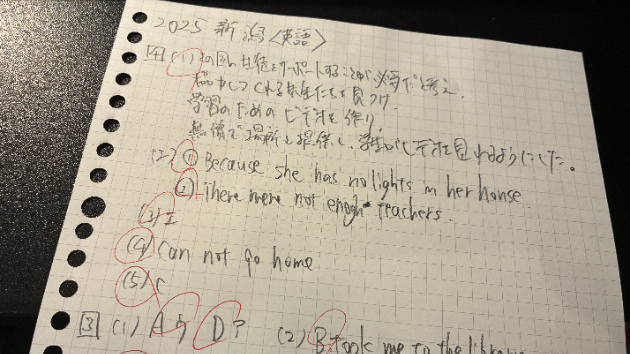 2025 新潟〈英語〉
4 (1) 国の生徒をサポートすることが必要だと考え、
協力してくれる先生たちを見つけ、
学習のためのビデオを作り、
無償で場所を提供し、学生がビデオを見れるようにした。
(2) ① Because she has no lights in her house.
② There were not enogh teachers.
(3) エ
(4) Can not go home
(5) C
3 (1) A D (2) B took me to the